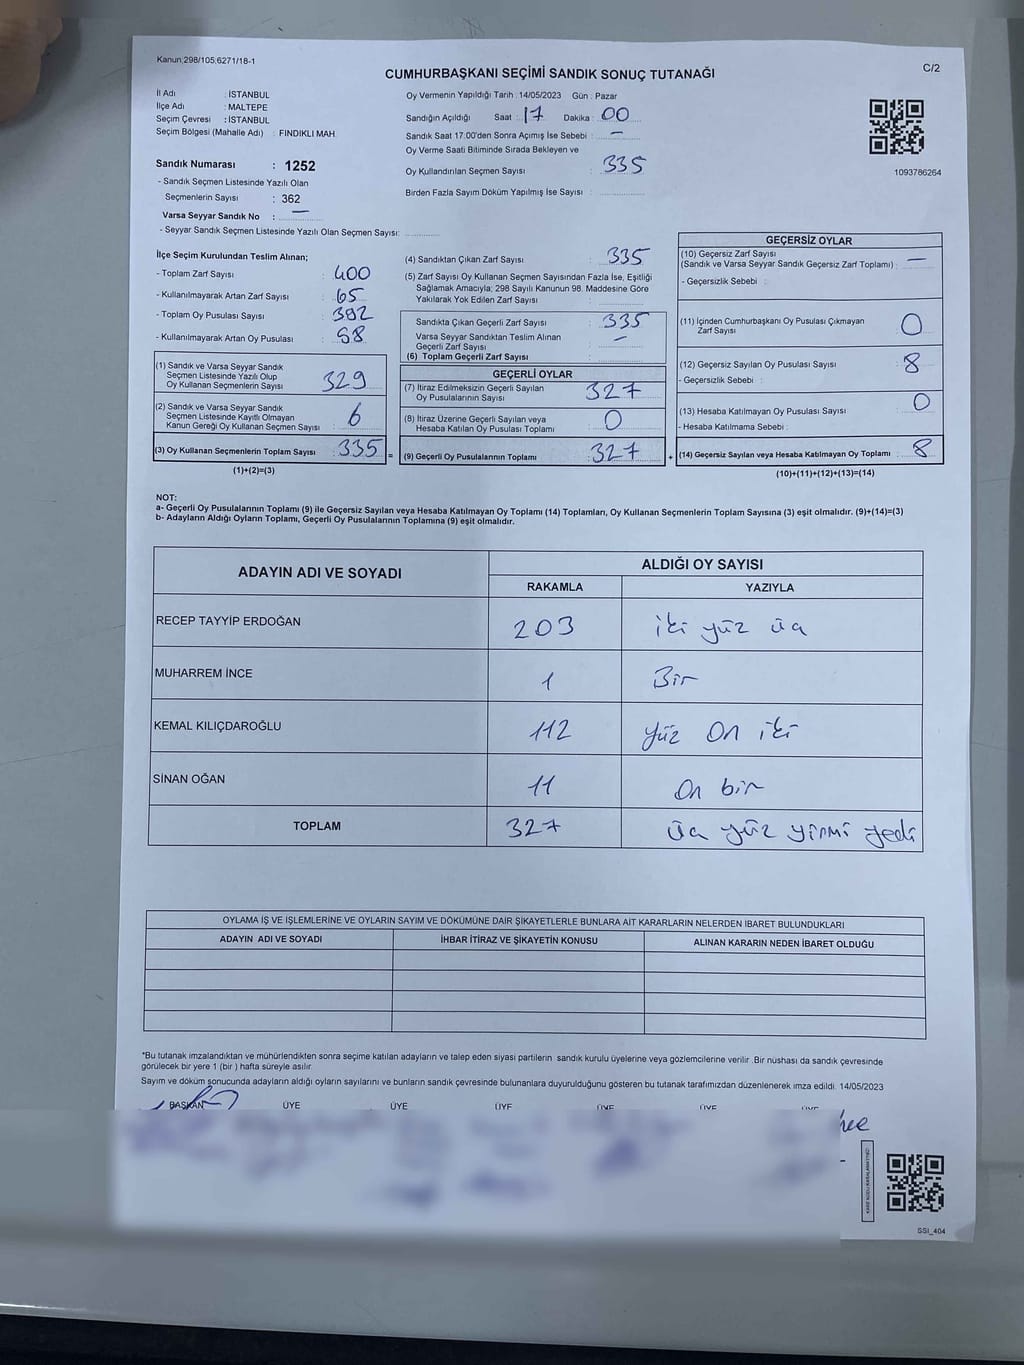 Kanun:298/105;6271/18-1
C/2
CUMHURBAŞKANI SEÇİMİ SANDIK SONUÇ TUTANAĞI
İl Adı : İSTANBUL
İlçe Adı : MALTEPE
Seçim Çevresi : İSTANBUL
Seçim Bölgesi (Mahalle Adı) : FINDIKLI MAH.
Sandık Numarası : 1252
- Sandık Seçmen Listesinde Yazılı Olan
Seçmenlerin Sayısı : 362
Varsa Seyyar Sandık No : —
- Seyyar Sandık Seçmen Listesinde Yazılı Olan Seçmen Sayısı:
Oy Vermenin Yapıldığı Tarih : 14/05/2023 Gün : Pazar
Sandığın Açıldığı Saat : 17 Dakika : 00
Sandık Saat 17:00'den Sonra Açımış İse Sebebi : —
Oy Verme Saati Bitiminde Sırada Bekleyen ve
Oy Kullandırılan Seçmen Sayısı : 335
Birden Fazla Sayım Döküm Yapılmış İse Sayısı :
1093786264
İlçe Seçim Kurulundan Teslim Alınan;
- Toplam Zarf Sayısı : 400
- Kullanılmayarak Artan Zarf Sayısı : 65
- Toplam Oy Pusulası Sayısı : 392
- Kullanılmayarak Artan Oy Pusulası : 58
(1) Sandık ve Varsa Seyyar Sandık
Seçmen Listesinde Yazılı Olup
Oy Kullanan Seçmenlerin Sayısı : 329
(2) Sandık ve Varsa Seyyar Sandık
Seçmen Listesinde Kayıtlı Olmayan
Kanun Gereği Oy Kullanan Seçmen Sayısı : 6
(3) Oy Kullanan Seçmenlerin Toplam Sayısı : 335
(1)+(2)=(3)
(4) Sandıktan Çıkan Zarf Sayısı : 335
(5) Zarf Sayısı Oy Kullanan Seçmen Sayısından Fazla İse, Eşitliği
Sağlamak Amacıyla; 298 Sayılı Kanunun 98. Maddesine Göre
Yakılarak Yok Edilen Zarf Sayısı :
Sandıkta Çıkan Geçerli Zarf Sayısı : 335
Varsa Seyyar Sandıktan Teslim Alınan
Geçerli Zarf Sayısı : —
(6) Toplam Geçerli Zarf Sayısı :
GEÇERLİ OYLAR
(7) İtiraz Edilmeksizin Geçerli Sayılan
Oy Pusulalarının Sayısı : 327
(8) İtiraz Üzerine Geçerli Sayılan veya
Hesaba Katılan Oy Pusulası Toplamı : 0
= (9) Geçerli Oy Pusulalarının Toplamı : 327
GEÇERSİZ OYLAR
(10) Geçersiz Zarf Sayısı
(Sandık ve Varsa Seyyar Sandık Geçersiz Zarf Toplamı) : —
- Geçersizlik Sebebi :
(11) İçinden Cumhurbaşkanı Oy Pusulası Çıkmayan
Zarf Sayısı : 0
(12) Geçersiz Sayılan Oy Pusulası Sayısı : 8
- Geçersizlik Sebebi :
(13) Hesaba Katılmayan Oy Pusulası Sayısı : 0
- Hesaba Katılmama Sebebi :
+ (14) Geçersiz Sayılan veya Hesaba Katılmayan Oy Toplamı : 8
(10)+(11)+(12)+(13)=(14)
NOT:
a- Geçerli Oy Pusulalarının Toplamı (9) ile Geçersiz Sayılan veya Hesaba Katılmayan Oy Toplamı (14) Toplamları, Oy Kullanan Seçmenlerin Toplam Sayısına (3) eşit olmalıdır. (9)+(14)=(3)
b- Adayların Aldığı Oyların Toplamı, Geçerli Oy Pusulalarının Toplamına (9) eşit olmalıdır.
ADAYIN ADI VE SOYADI ALDIĞI OY SAYISI
RAKAMLA YAZIYLA
RECEP TAYYİP ERDOĞAN 203 iki yüz üç
MUHARREM İNCE 1 Bir
KEMAL KILIÇDAROĞLU 112 yüz On iki
SİNAN OĞAN 11 On bir
TOPLAM 327 üç yüz yirmi yedi
OYLAMA İŞ VE İŞLEMLERİNE VE OYLARIN SAYIM VE DÖKÜMÜNE DAİR ŞİKAYETLERLE BUNLARA AİT KARARLARIN NELERDEN İBARET BULUNDUKLARI
ADAYIN ADI VE SOYADI İHBAR İTİRAZ VE ŞİKAYETİN KONUSU ALINAN KARARIN NEDEN İBARET OLDUĞU
*Bu tutanak imzalandıktan ve mühürlendikten sonra seçime katılan adayların ve talep eden siyasi partilerin sandık kurulu üyelerine veya gözlemcilerine verilir. Bir nushası da sandık çevresinde
görülecek bir yere 1 (bir) hafta süreyle asılır.
Sayım ve döküm sonucunda adayların aldığı oyların sayılarını ve bunların sandık çevresinde bulunanlara duyurulduğunu gösteren bu tutanak tarafımızdan düzenlenerek imza edildi. 14/05/2023
BAŞKAN ÜYE ÜYE ÜYE ÜYE ÜYE ÜYE
SSI_404